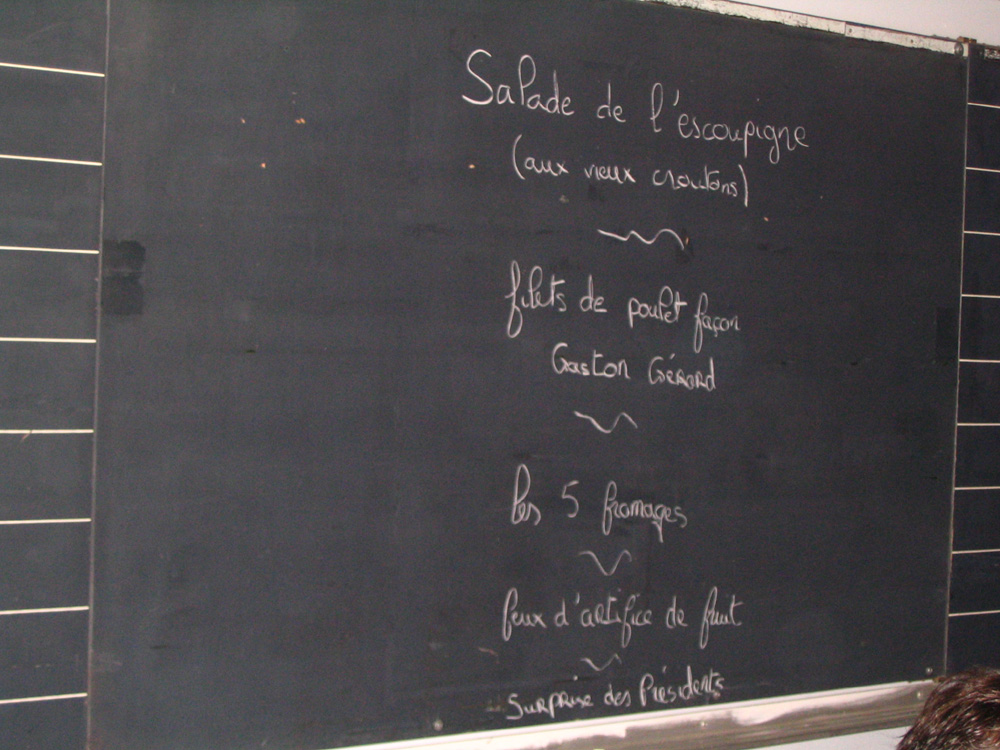 Salade de l'escoupigne
(aux vieux croutons)
filets de poulet façon
Gaston Gérard
les 5 fromages
feux d'artifice de fruit
Surprise des Présidents